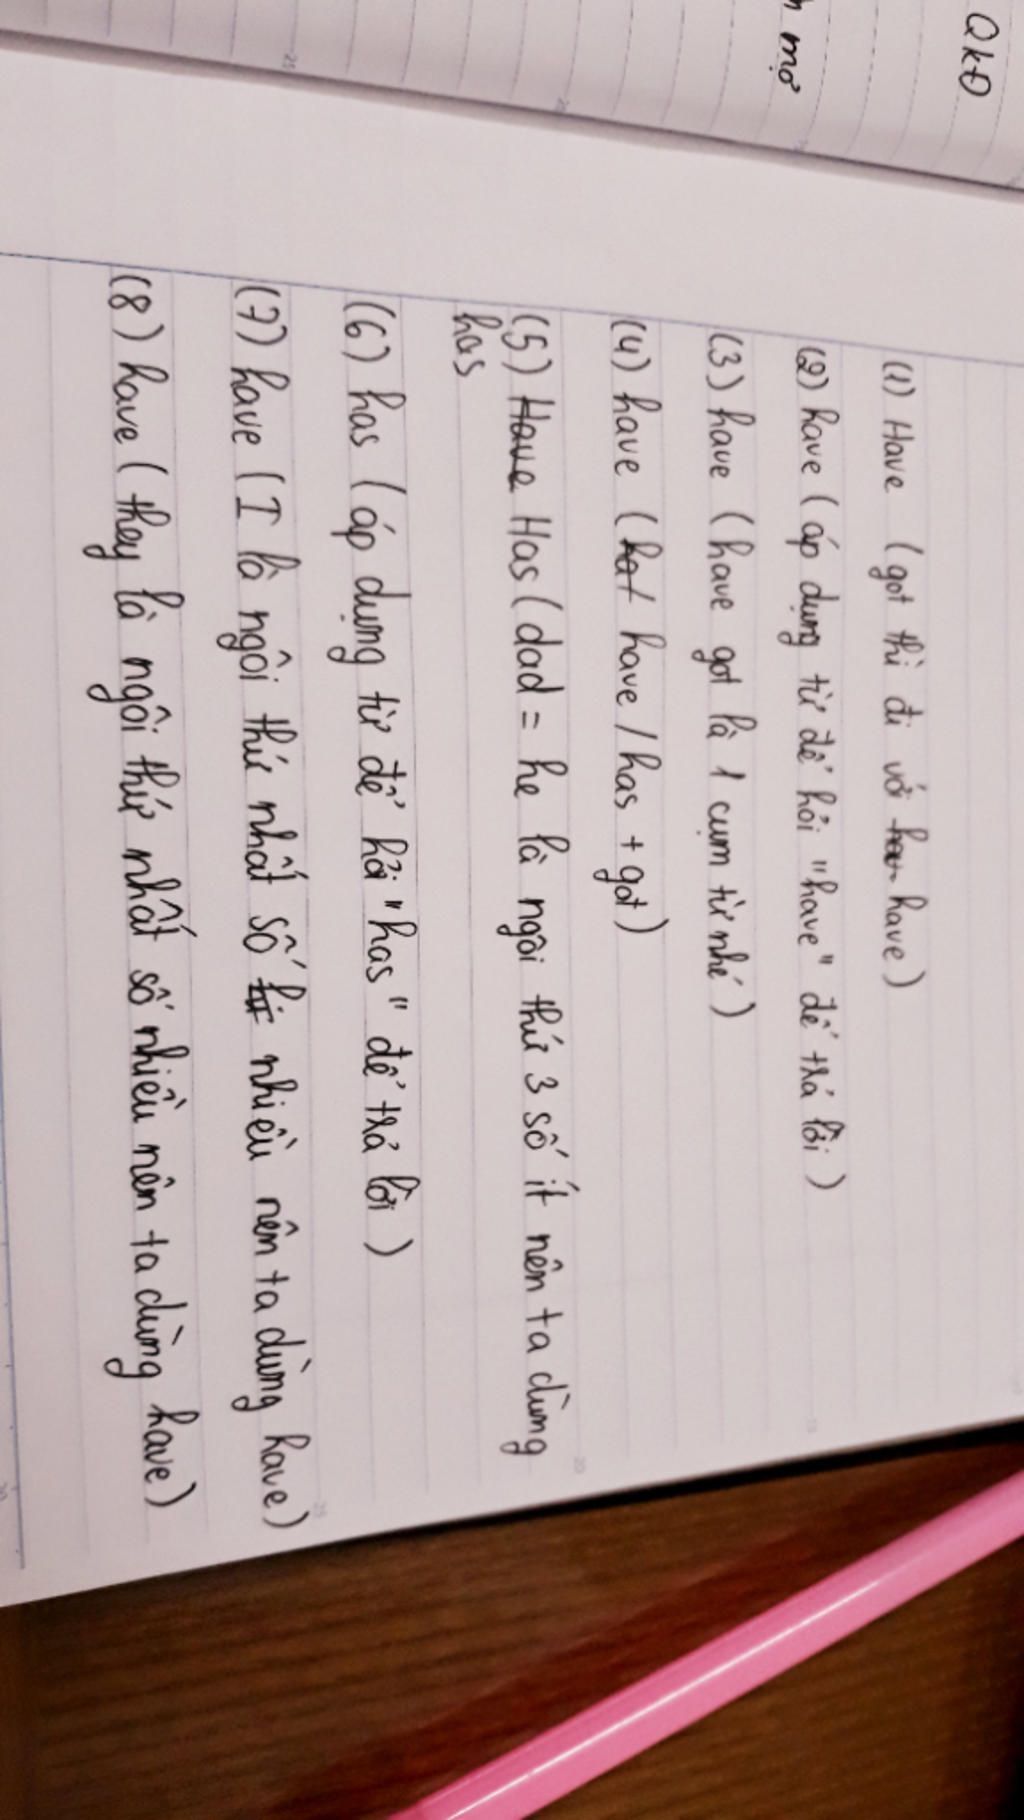 QkĐ
mợ
(1) Have (got thì đi với have)
(2) have (áp dụng từ để hỏi "have" để trả lời)
(3) have (have got là 1 cụm từ nhé)
(4) have (hat have / has + got)
(5) Have Has (dad = he là ngôi thứ 3 số ít nên ta dùng
has
(6) has (áp dụng từ để hỏi "has" để trả lời)
(7) have (I là ngôi thứ nhất số nhiều nên ta dùng have)
(8) have (they là ngôi thứ nhất số nhiều nên ta dùng have)